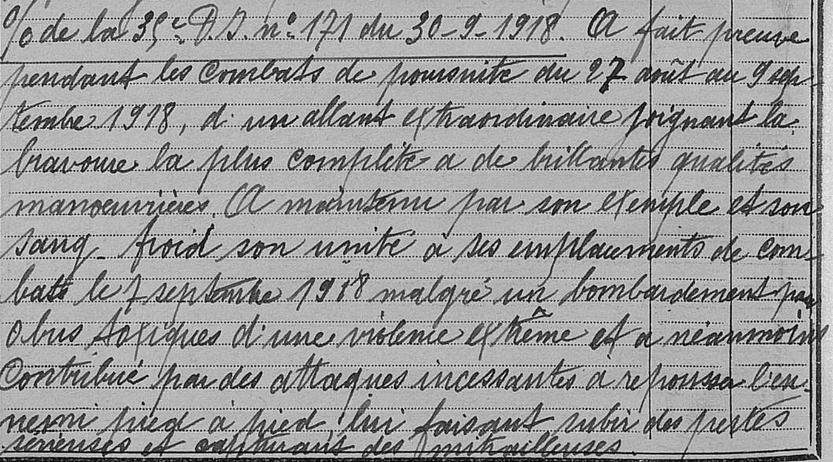 % de la 35e D.I. n° 171 du 30-9-1918. A fait preuve
pendant les combats de poursuite du 27 août au 9 sep-
tembre 1918, d'un allant extraordinaire joignant la
bravoure la plus complète a de brillantes qualités
manoeuvrières. A maintenu par son exemple et son
sang-froid son unité a ses emplacements de com-
bats le 7 septembre 1918 malgré un bombardement par
obus toxiques d'une violence extrême et a néanmoins
contribué par des attaques incessantes a repousser l'en-
nemi pied à pied, lui faisant subir des pertes
sérieuses et capturant des mitrailleuses.